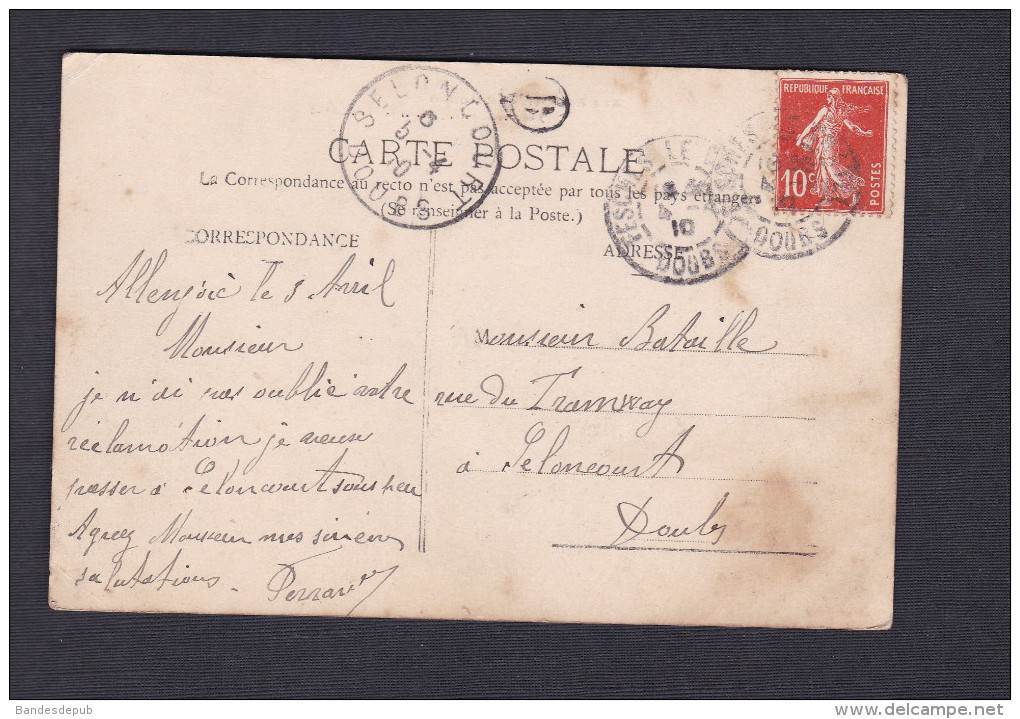 SELONCOURT
DOUBS
6
5 - 4
10
REPUBLIQUE FRANÇAISE
10c
POSTES
LE
10
DOUBS
DOUBS
CARTE POSTALE
La Correspondance au recto n'est pas acceptée par tous les pays étrangers
(Se renseigner à la Poste.)
CORRESPONDANCE
ADRESSE
Allenjoie le 5 Avril
Monsieur
je n'ai pas oublié votre
réclamation je
passer à Seloncourt sous peu
Agréez Monsieur mes sincères
salutations.
Monsieur Bataille
rue du Tramway
à Seloncourt
Doubs
Bandesdepub
www.delcampe.net